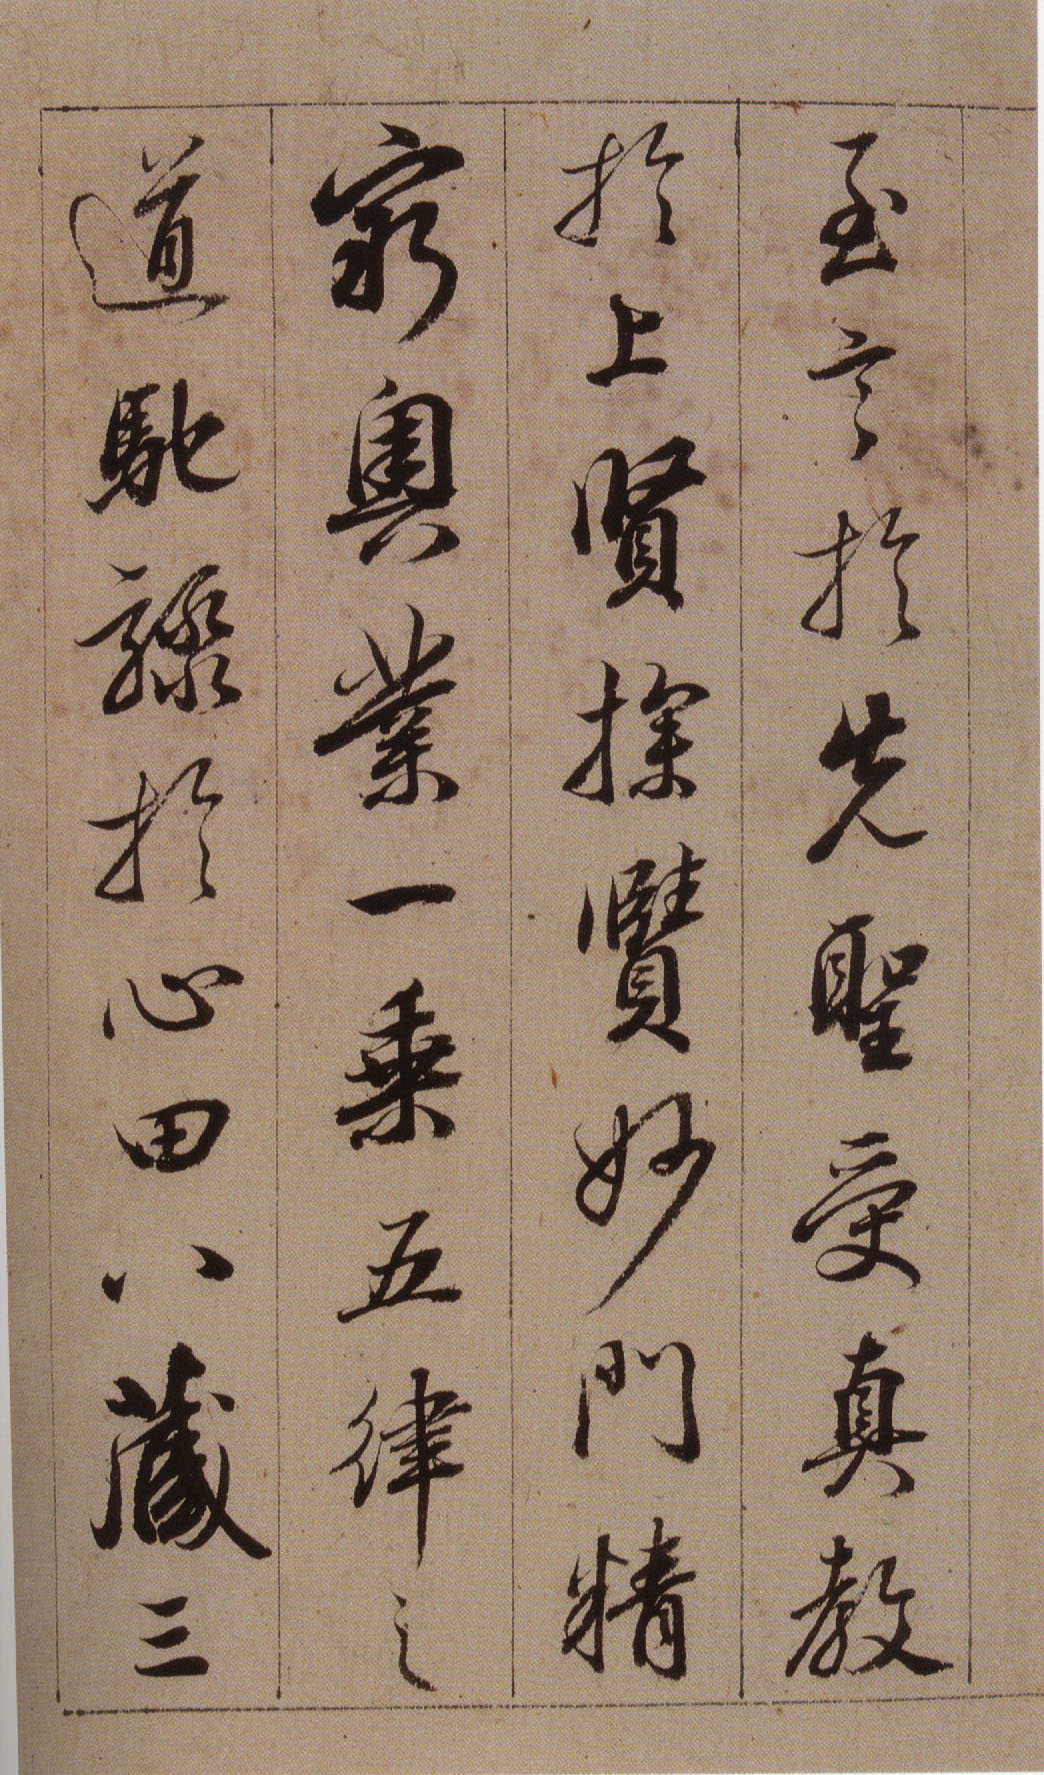 至言於先聖受真教
於上賢探賾妙門精
窮奧業一乘五律之
道馳驟於心田八藏三